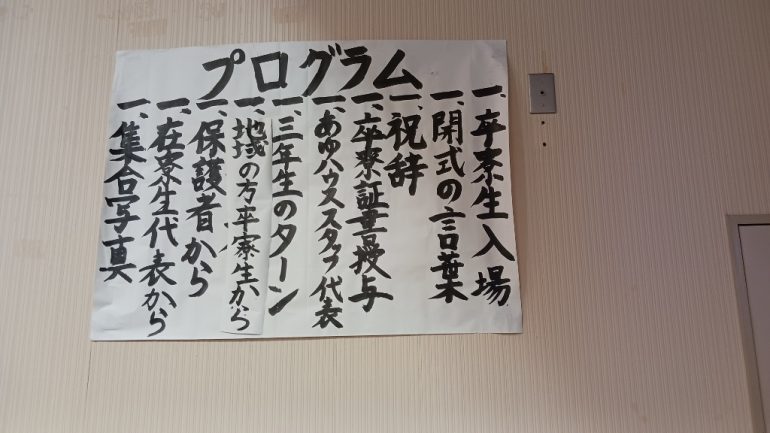 プログラム
一、卒寮生入場
一、開式の言葉
一、祝辞
一、卒寮証書授与
一、あゆハウススタッフ代表
一、三年生のターン
一、地域の方卒寮生から
一、保護者から
一、在寮生代表から
一、集合写真